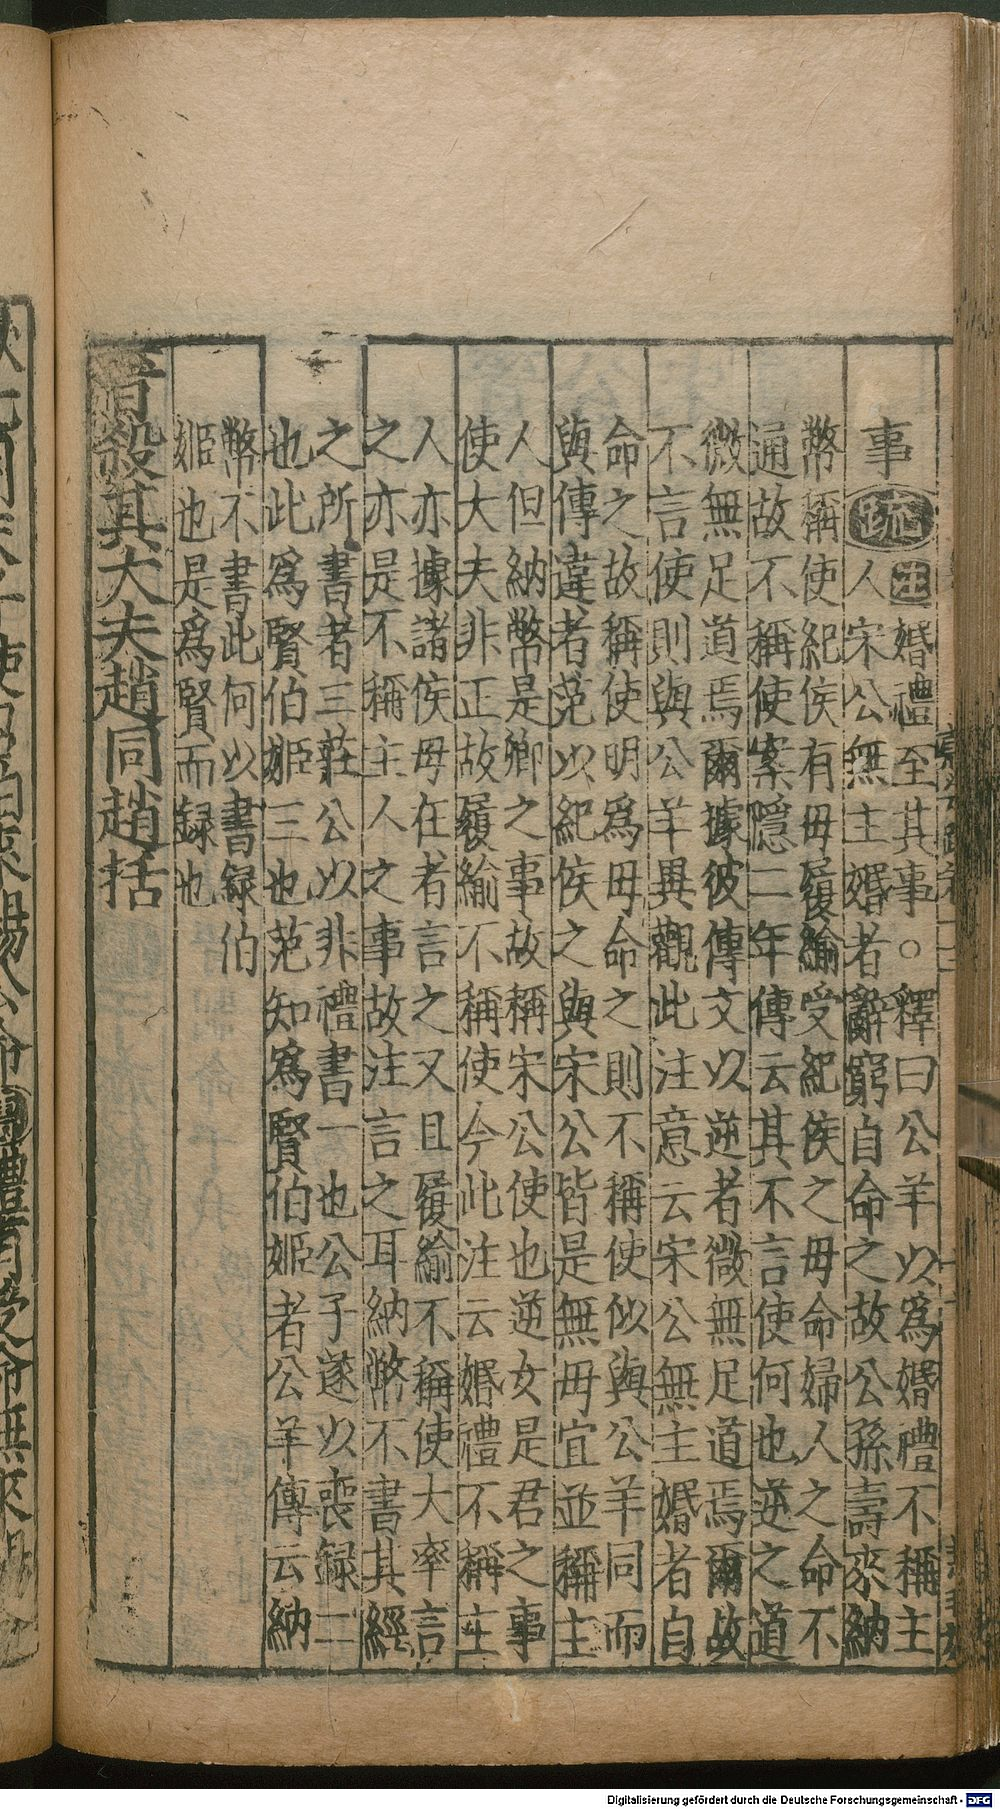 事疏注婚禮至其事○釋曰公羊以爲婚禮不稱主
人宋公無主婚者辭窮自命之故公孫壽來納
幣稱使紀侯有母履緰受紀侯之母命婦人之命不
通故不稱使案隱二年傳云其不言使何也逆之道
微無足道焉爾據彼傳文以逆者微無足道焉爾故
不言使則與公羊異觀此注意云宋公無主婚者自
命之故稱使明爲母命之則不稱使似與公羊同而
與傳違者范以紀侯之與宋公皆是無母宜並稱主
人但納幣是卿之事故稱宋公使也逆女是君之事
使大夫非正故履緰不稱使今此注云婚禮不稱主
人亦據諸侯母在者言之又且履緰不稱使大率言
之亦是不稱主人之事故注言之耳納幣不書其經
之所書者三莊公以非禮書一也公子遂以喪録二
也此爲賢伯姬三也范知爲賢伯姬者公羊傳云納
幣不書此何以書録伯
姬也是爲賢而録也
晉殺其大夫趙同趙括
秋七月天子使召伯來錫公命傳禮有受命無來錫
Digitalisierung gefördert durch die Deutsche Forschungsgemeinschaft - DFG